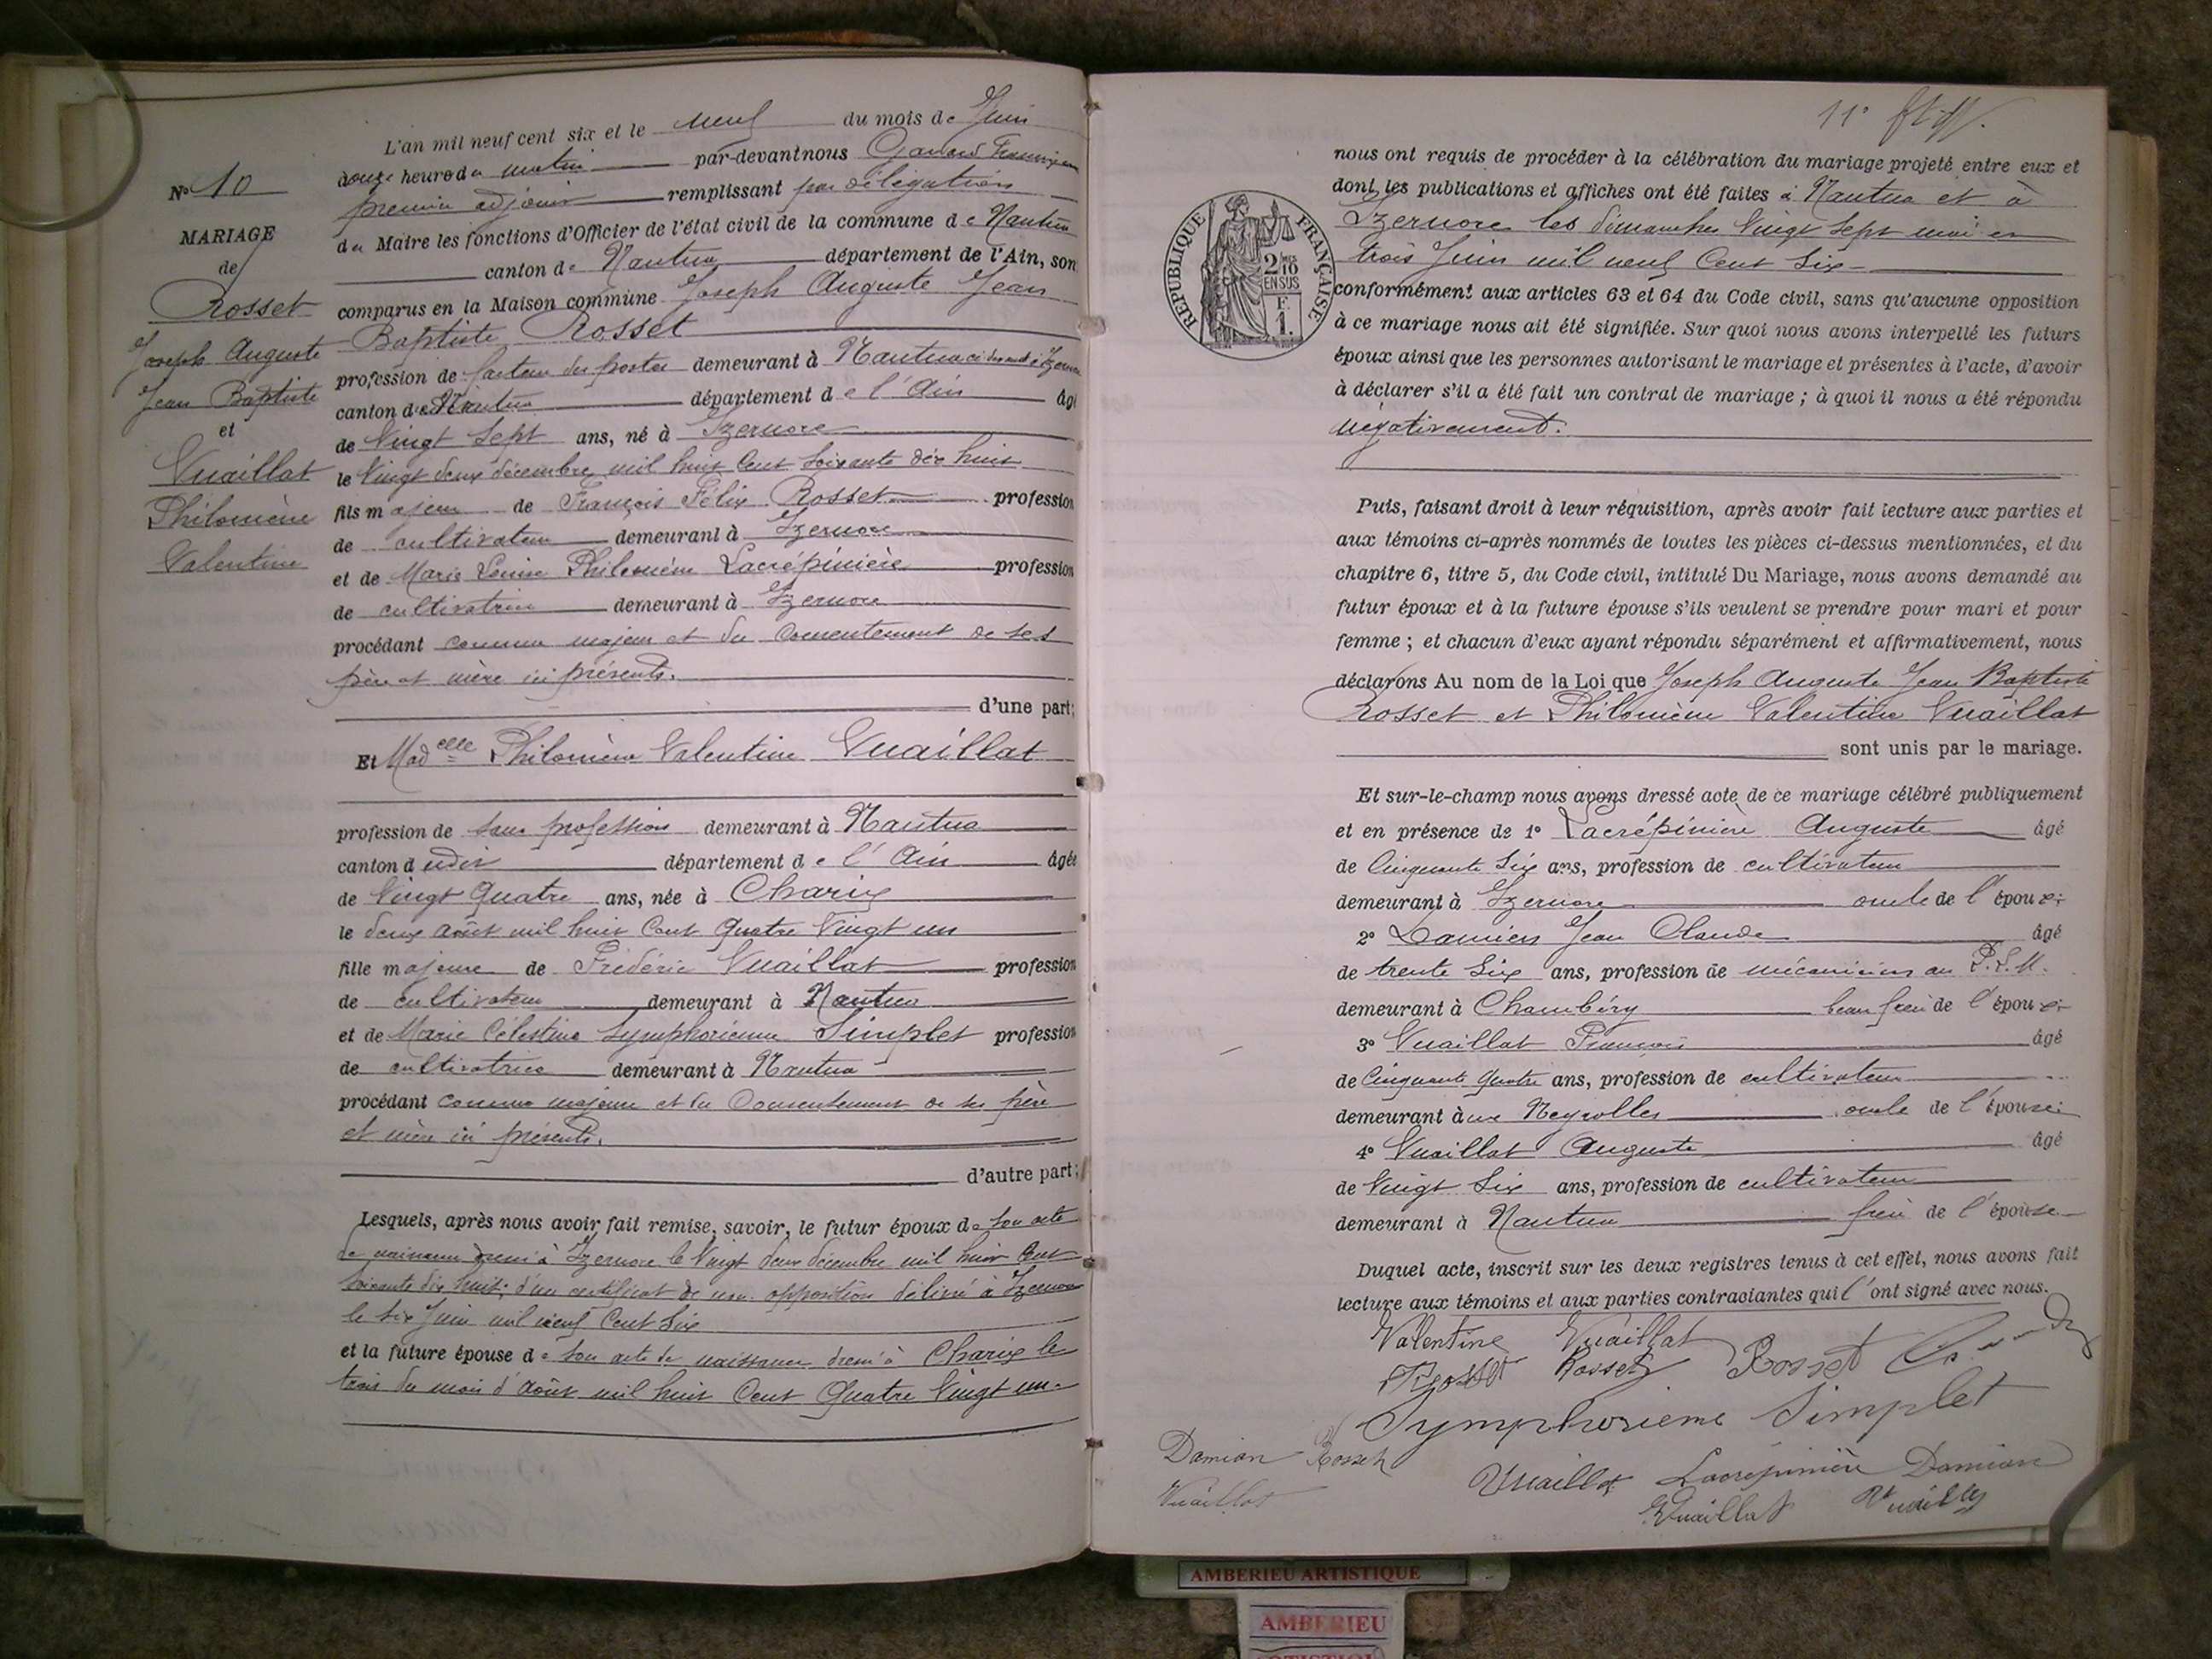 L'an mil neuf cent six et le neuf du mois de Juin
douze heure du matin par-devant nous
premier adjoint remplissant par délégation
du Maire les fonctions d'Officier de l'état civil de la commune de Nantua
canton de Nantua département de l'Ain, son
comparus en la Maison commune Joseph Auguste Jean
Baptiste Rosset
profession de facteur des postes demeurant à Nantua ci devant à Izernore
canton de Nantua département de l'Ain âgé
de Vingt Sept ans, né à Izernore
le Vingt deux décembre mil huit Cent Soixante dix huit
fils majeur de François Félix Rosset profession
de cultivateur demeurant à Izernore
et de Marie Louise Philomène Lacrépinière profession
de cultivatrice demeurant à Izernore
procédant comme majeur et du Consentement de ses
père et mère ici présents.
d'une part;
Et Madelle Philomène Valentine Vuaillat
profession de sans profession demeurant à Nantua
canton d udit département de l'Ain âgée
de Vingt Quatre ans, née à Charix
le deux août mil huit Cent Quatre Vingt un
fille majeure de Frédéric Vuaillat profession
de cultivateur demeurant à Nantua
et de Marie Célestine Symphorienne Simplet profession
de cultivatrice demeurant à Nantua
procédant comme majeure et du Consentement de ses père
et mère ici présents.
d'autre part;
Lesquels, après nous avoir fait remise, savoir, le futur époux de son acte
de naissance dressé à Izernore le Vingt deux décembre mil huit Cent
Soixante dix huit; d'un certificat de non opposition délivré à Izernore
le six Juin mil neuf Cent Six
et la future épouse de son acte de naissance dressé à Charix le
trois du mois d'août mil huit Cent Quatre Vingt un.
N° 10
MARIAGE
de
Rosset
Joseph Auguste
Jean Baptiste
et
Vuaillat
Philomène
Valentine
11e
RÉPUBLIQUE FRANÇAISE
2/10
EN SUS
F
1.
nous ont requis de procéder à la célébration du mariage projeté entre eux et
dont les publications et affiches ont été faites à Nantua et à
Izernore les dimanches Vingt Sept mai et
trois Juin mil neuf Cent Six
conformément aux articles 63 et 64 du Code civil, sans qu'aucune opposition
à ce mariage nous ait été signifiée. Sur quoi nous avons interpellé les futurs
époux ainsi que les personnes autorisant le mariage et présentes à l'acte, d'avoir
à déclarer s'il a été fait un contrat de mariage ; à quoi il nous a été répondu
négativement.
Puis, faisant droit à leur réquisition, après avoir fait lecture aux parties et
aux témoins ci-après nommés de toutes les pièces ci-dessus mentionnées, et du
chapitre 6, titre 5, du Code civil, intitulé Du Mariage, nous avons demandé au
futur époux et à la future épouse s'ils veulent se prendre pour mari et pour
femme ; et chacun d'eux ayant répondu séparément et affirmativement, nous
déclarons Au nom de la Loi que Joseph Auguste Jean Baptiste
Rosset et Philomène Valentine Vuaillat
sont unis par le mariage.
Et sur-le-champ nous avons dressé acte de ce mariage célébré publiquement
et en présence de 1° Lacrépinière Auguste âgé
de Cinquante Six ans, profession de cultivateur
demeurant à Izernore oncle de l'époux
2° Damien Jean Claude âgé
de trente Six ans, profession de mécanicien au P.L.M.
demeurant à Chambéry beau frère de l'époux
3° Vuaillat François âgé
de Cinquante Quatre ans, profession de cultivateur
demeurant à ux Neyrolles oncle de l'épouse
4° Vuaillat Auguste âgé
de Vingt Six ans, profession de cultivateur
demeurant à Nantua frère de l'épouse
Duquel acte, inscrit sur les deux registres tenus à cet effet, nous avons fait
lecture aux témoins et aux parties contractantes qui l'ont signé avec nous.
Valentine Vuaillat
Rosset Rosset Rosset
Symphorienne Simplet
Damian Rosset
Vuaillat Lacrépinière Damian
Vuaillat
Vuaillat Vuaillat
AMBERIEU ARTISTIQUE
AMBERIEU
ARTISTIQUE